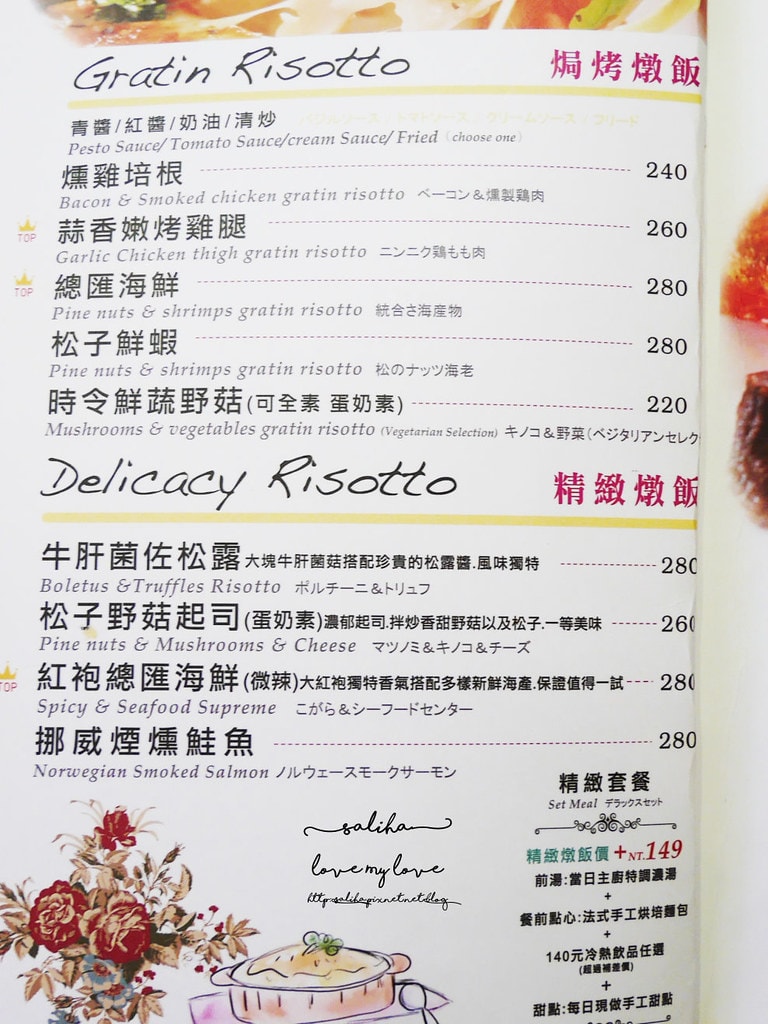 Gratin Risotto 焗烤燉飯
青醬/紅醬/奶油/清炒
Pesto Sauce/ Tomato Sauce/cream Sauce/ Fried (choose one)
燻雞培根 240
Bacon & Smoked chicken gratin risotto ベーコン&燻製鶏肉
TOP 蒜香嫩烤雞腿 260
Garlic Chicken thigh gratin risotto ニンニク鶏もも肉
TOP 總匯海鮮 280
Pine nuts & shrimps gratin risotto 統合さ海産物
松子鮮蝦 280
Pine nuts & shrimps gratin risotto 松のナッツ海老
時令鮮蔬野菇(可全素 蛋奶素) 220
Mushrooms & vegetables gratin risotto (Vegetarian Selection) キノコ&野菜(ベジタリアンセレク
Delicacy Risotto 精緻燉飯
牛肝菌佐松露 大塊牛肝菌菇搭配珍貴的松露醬.風味獨特 280
Boletus &Truffles Risotto ポルチーニ&トリュフ
松子野菇起司(蛋奶素)濃郁起司.拌炒香甜野菇以及松子.一等美味 260
Pine nuts & Mushrooms & Cheese マツノミ&キノコ&チーズ
TOP 紅袍總匯海鮮(微辣)大紅袍獨特香氣搭配多樣新鮮海產.保證值得一試 280
Spicy & Seafood Supreme こがら&シーフードセンター
挪威煙燻鮭魚 280
Norwegian Smoked Salmon ノルウェースモークサーモン
精緻套餐
Set Meal デラックスセット
精緻燉飯價+NT.149
前湯:當日主廚特調濃湯
+
餐前點心:法式手工烘培麵包
+
140元冷熱飲品任選
(超過補差價)
+
甜點:每日現做手工甜點
saliha
love my love
http:saliha.pixnet.net/blog